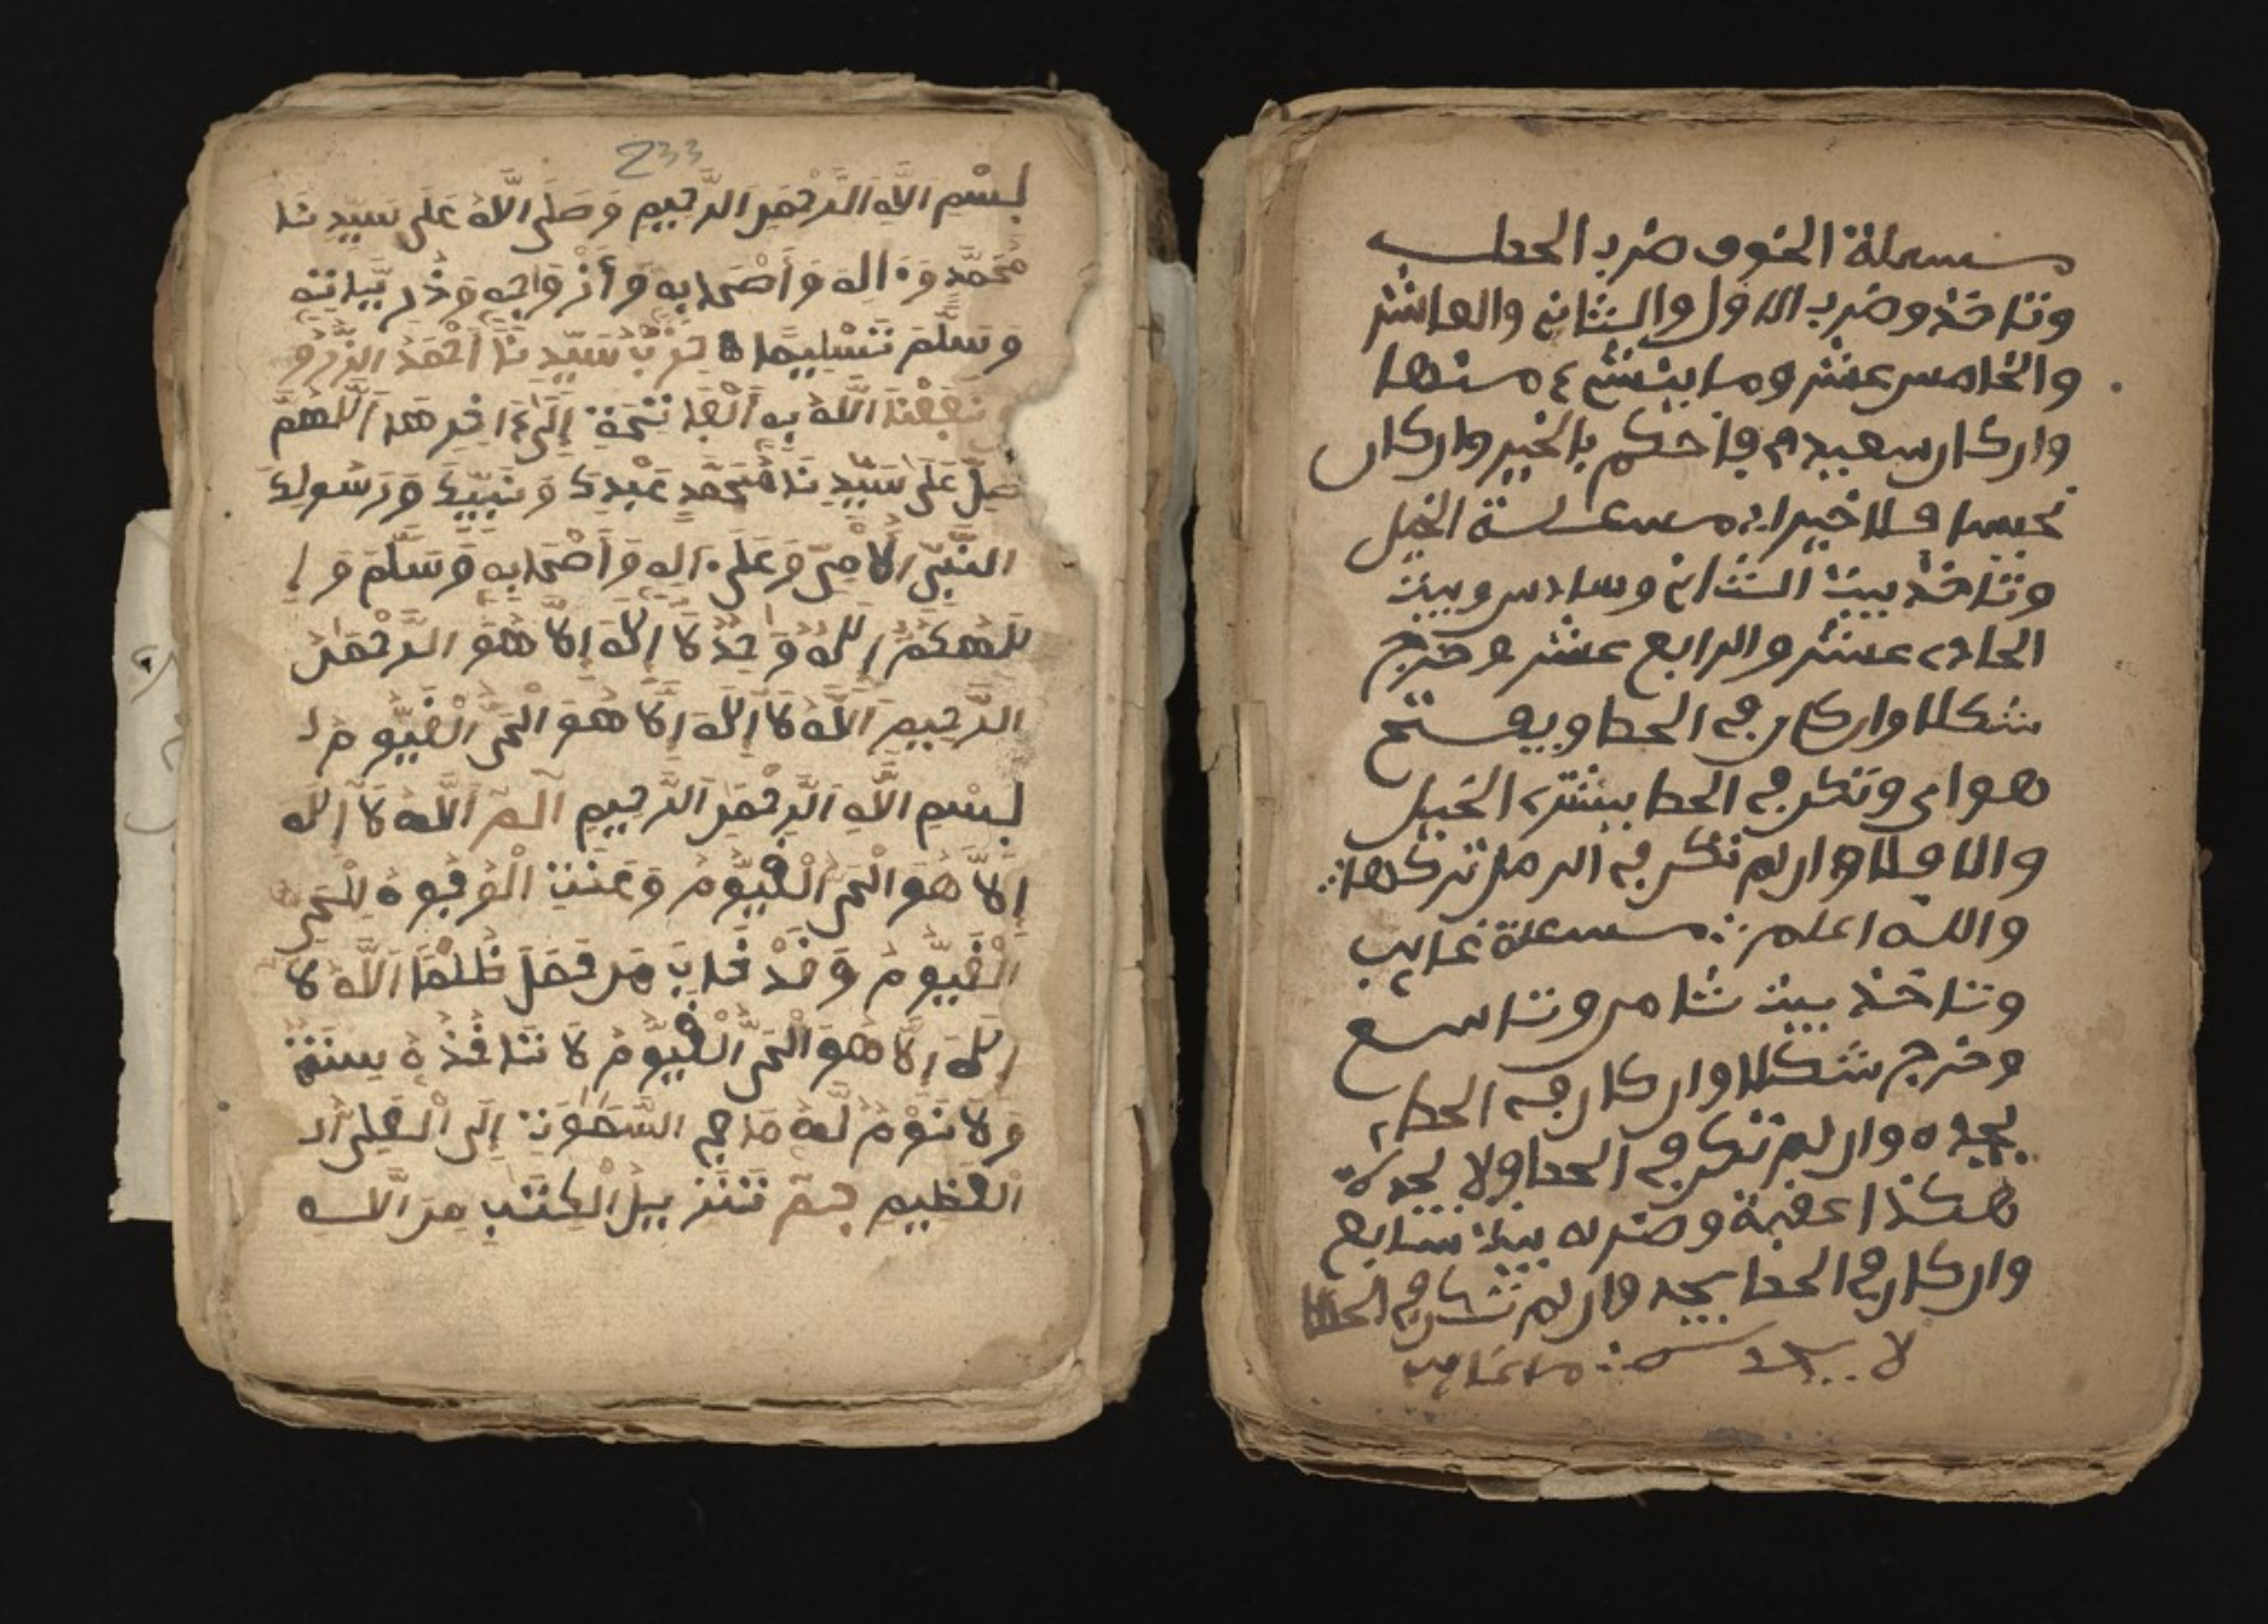 مسعلة الخوف ضرب الحطب
وتاخذ وضرب الاول والثاني والعاشر
والخامس عشر وما ينشئ منها
واركان سعيدم فاحكم بالخير واركان
نحسا فلا خير ايه مسعلة الخيل
وتاخذ بيت الثاني وسادس وبيت
الحادي عشر والرابع عشر وخرج
شكلا واركان في الخط
هواي وتكن في الخط بيشتري الخيل
والا فلا وان لم تكن في الرمل تركها
والله اعلم مسعلة غايب
وتاخذ بيت ثامن وتاسع
وخرج شكلا واركان في الخط
يجده وان لم تكن في الخط ولا يجد
هكذا عقبة وضربه بيت سابع
واركان في الخط يجد وان لم تكن في الخط
لا
233
بِسْمِ اللَّهِ الرَّحْمَنِ الرَّحِيمِ وَصَلَّى اللَّهُ عَلَى سَيِّدِنَا
مُحَمَّدٍ وَءَالِهِ وَأَصْحَابِهِ وَأَزْوَاجِهِ وَذُرِّيَّاتِهِ
وَسَلَّمَ تَسْلِيمًا حِزْبُ سَيِّدِنَا أَحْمَدَ الزَّرُّو
نَفَعْنَا اللَّهُ بِهِ الْفَاتِحَةِ إِلَى ءَاخِرِهَا اللَّهُمَّ
صَلِّ عَلَى سَيِّدِنَا مُحَمَّدٍ عَبْدِكَ وَنَبِيِّكَ وَرَسُولِكَ
النَّبِيِّ الْأُمِّيِّ وَعَلَى ءَالِهِ وَأَصْحَابِهِ وَسَلَّمَ وَإِ
لَهُكُمْ إِلَهٌ وَاحِدٌ لَا إِلَهَ إِلَّا هُوَ الرَّحْمَنُ
الرَّحِيمُ اللَّهُ لَا إِلَهَ إِلَّا هُوَ الْحَيُّ الْقَيُّومُ
بِسْمِ اللَّهِ الرَّحْمَنِ الرَّحِيمِ الم اللَّهُ لَا إِلَهَ
إِلَّا هُوَ الْحَيُّ الْقَيُّومُ وَعَنَتِ الْوُجُوهُ لِلْحَيِّ
الْقَيُّومِ وَقَدْ خَابَ مَنْ حَمَلَ ظُلْمًا اللَّهُ لَا
إِلَهَ إِلَّا هُوَ الْحَيُّ الْقَيُّومُ لَا تَاخُذُهُ سِنَةٌ
وَلَا نَوْمٌ لَهُ مَا فِي السَّمَوَتِ إِلَى الْعَلِيُّ
الْعَظِيمُ حم تَنْزِيلُ الْكِتَبِ مِنَ اللَّهِ